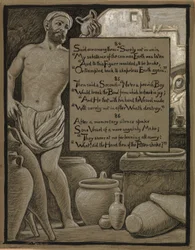 Said one among them— "Surely not in vain
"My substance of the common Earth was ta'en
"And to this Figure moulded, to be broke,
"Or trampled back to shapeless Earth again."
Then said a Second— "Ne'er a peevish Boy
"Would break the Bowl from which he drank in joy;
"And He that with his hand the Vessel made
"Will surely not in after Wrath destroy."
After a momentary silence spake
Some Vessel of a more ungainly Make;
"They sneer at me for leaning all awry:
"What! did the Hand then of the Potter shake?"